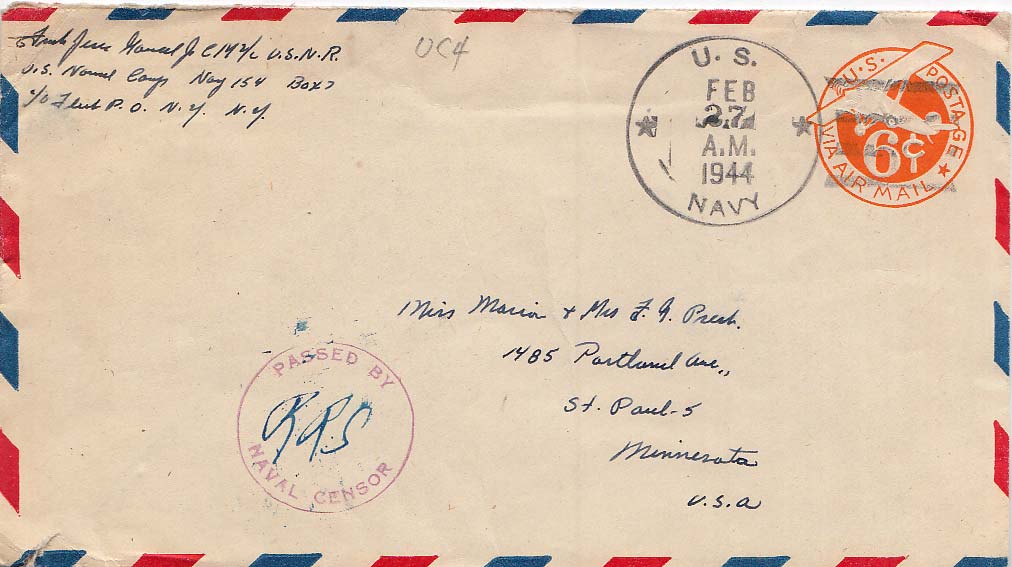 Jr CM2/c U.S.N.R.
U.S. Naval Navy 154 Box 7
c/o Fleet P.O. N.Y. N.Y.
UC4
U.S.
FEB
27
A.M.
1944
NAVY
U.S. POSTAGE
6¢
VIA AIR MAIL
Miss Marion + Mrs F. A.
1485 Portland Ave.,
St. Paul-5
Minnesota
U.S.A
PASSED BY
NAVAL CENSOR